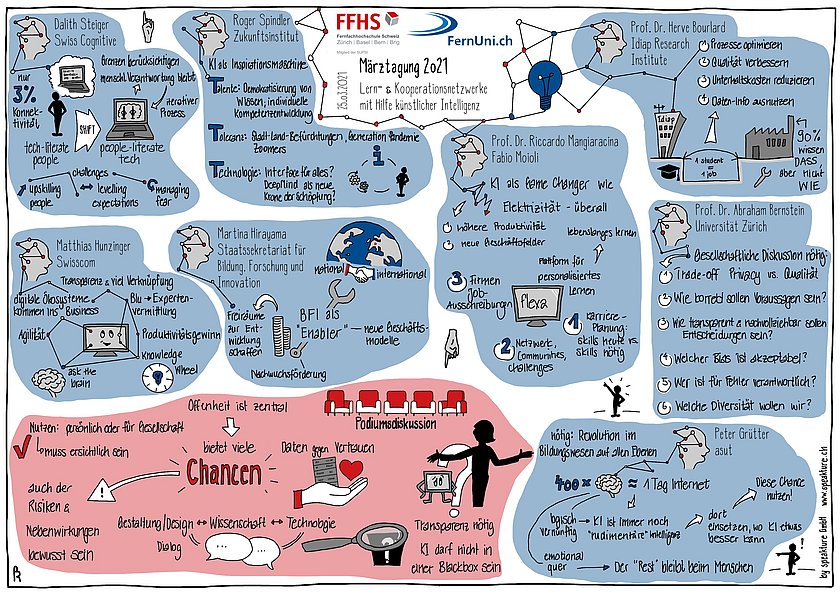 Dalith Steiger
Swiss Cognitive
Grenzen berücksichtigen
menschl. Verantwortung bleibt
nur
3%
Konnek-
tivität
iterativer
Prozess
SHIFT
tech-literate
people
people-literate
tech
challenges
upskilling
people
levelling
expectations
managing
fear
Roger Spindler
Zukunftsinstitut
KI als Inspirationsmaschine
Talente: Demokratisierung von
Wissen, individuelle
Kompetenzentwicklung
Toleranz: Stadt-Land-Befürchtungen, Generation Pandemie
Zoomers
Technologie: Interface für alles?
DeepMind als neue
Krone der Schöpfung?
i
FFHS
Fernfachhochschule Schweiz
Zürich | Basel | Bern | Brig
Mitglied der SUPSI
FernUni.ch
25.03.2021
Märztagung 2021
Lern- & Kooperationsnetzwerke
mit Hilfe künstlicher Intelligenz
Prof. Dr. Herve Bourlard
Idiap Research
Institute
1 Prozesse optimieren
2 Qualität verbessern
3 Unterhaltskosten reduzieren
4 Daten-Info ausnutzen
Idiap
1 student
=
1 job
90%
wissen
DASS,
aber nicht
WIE
Prof. Dr. Riccardo Mangiaracina
Fabio Moioli
KI als Game Changer wie
Elektrizität - überall
1 höhere Produktivität
2 neue Geschäftsfelder
lebenslanges lernen
Plattform für
personalisiertes
Lernen
3 Firmen
Job-
Ausschreibungen
flexa
1 Karriere-
Planung:
skills heute vs.
skills nötig
2 Netzwerk,
Communities,
challenges
Prof. Dr. Abraham Bernstein
Universität Zürich
Gesellschaftliche Diskussion nötig:
1 Trade-off Privacy vs. Qualität
2 Wie korrekt sollen Voraussagen sein?
3 Wie transparent & nachvollziehbar sollen
Entscheidungen sein?
4 Welcher Bias ist akzeptabel?
5 Wer ist für Fehler verantwortlich?
6 Welche Diversität wollen wir?
Matthias Hunzinger
Swisscom
Transparenz & viel Verknüpfung
digitale Ökosysteme
kommen ins Business
Blu → Experten-
vermittlung
Agilität
Produktivitätsgewinn
ask the
brain
knowledge
Wheel
Martina Hirayama
Staatssekretariat für
Bildung, Forschung und
Innovation
national
international
Freiräume
zur Ent-
wicklung
schaffen
BFI als
"Enabler"
neue Geschäfts-
modelle
Nachwuchsförderung
Offenheit ist zentral
Podiumsdiskussion
Nutzen: persönlich oder für Gesellschaft
muss ersichtlich sein
bietet viele
Chancen
Daten gegen Vertrauen
auch der
Risiken &
Nebenwirkungen
bewusst sein
!
Gestaltung/Design ↔ Wissenschaft ↔ Technologie
Dialog
?
Transparenz nötig
KI darf nicht in
einer Blackbox sein
nötig: Revolution im
Bildungswesen auf allen Ebenen
Peter Grütter
asut
400 x ≈ 1 Tag Internet
logisch
vernünftig → KI ist immer noch
"rudimentäre" Intelligenz
dort
einsetzen, wo KI etwas
besser kann
Diese Chance
nutzen!
emotional
quer → Der "Rest" bleibt beim Menschen
!
by speakture GmbH www.speakture.ch